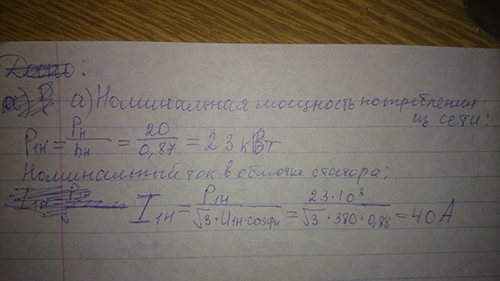 Дано:
а) Р а) Номинальная мощность потребления
из сети:
P₁н = Pн / hн = 20 / 0,87 = 23 кВт
Номинальный ток в обмотке статора;
I₁н = P₁н / √3·U₁н·cosφн = 23·10³ / √3·380·0,88 = 40 А